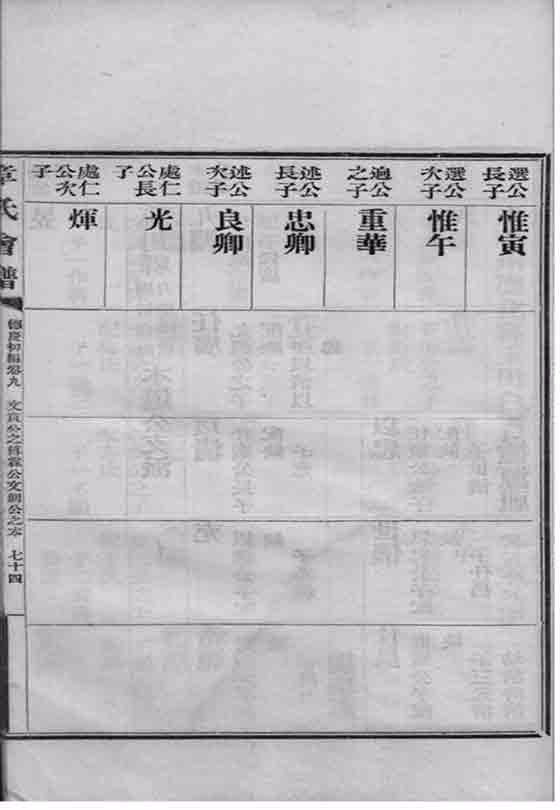 選公長子
惟寅
選公次子
惟午
適公之子
重華
述公長子
忠卿
述公次子
良卿
處仁公長子
光
處仁公次子
輝
章氏會譜
德慶初編卷九
七十四